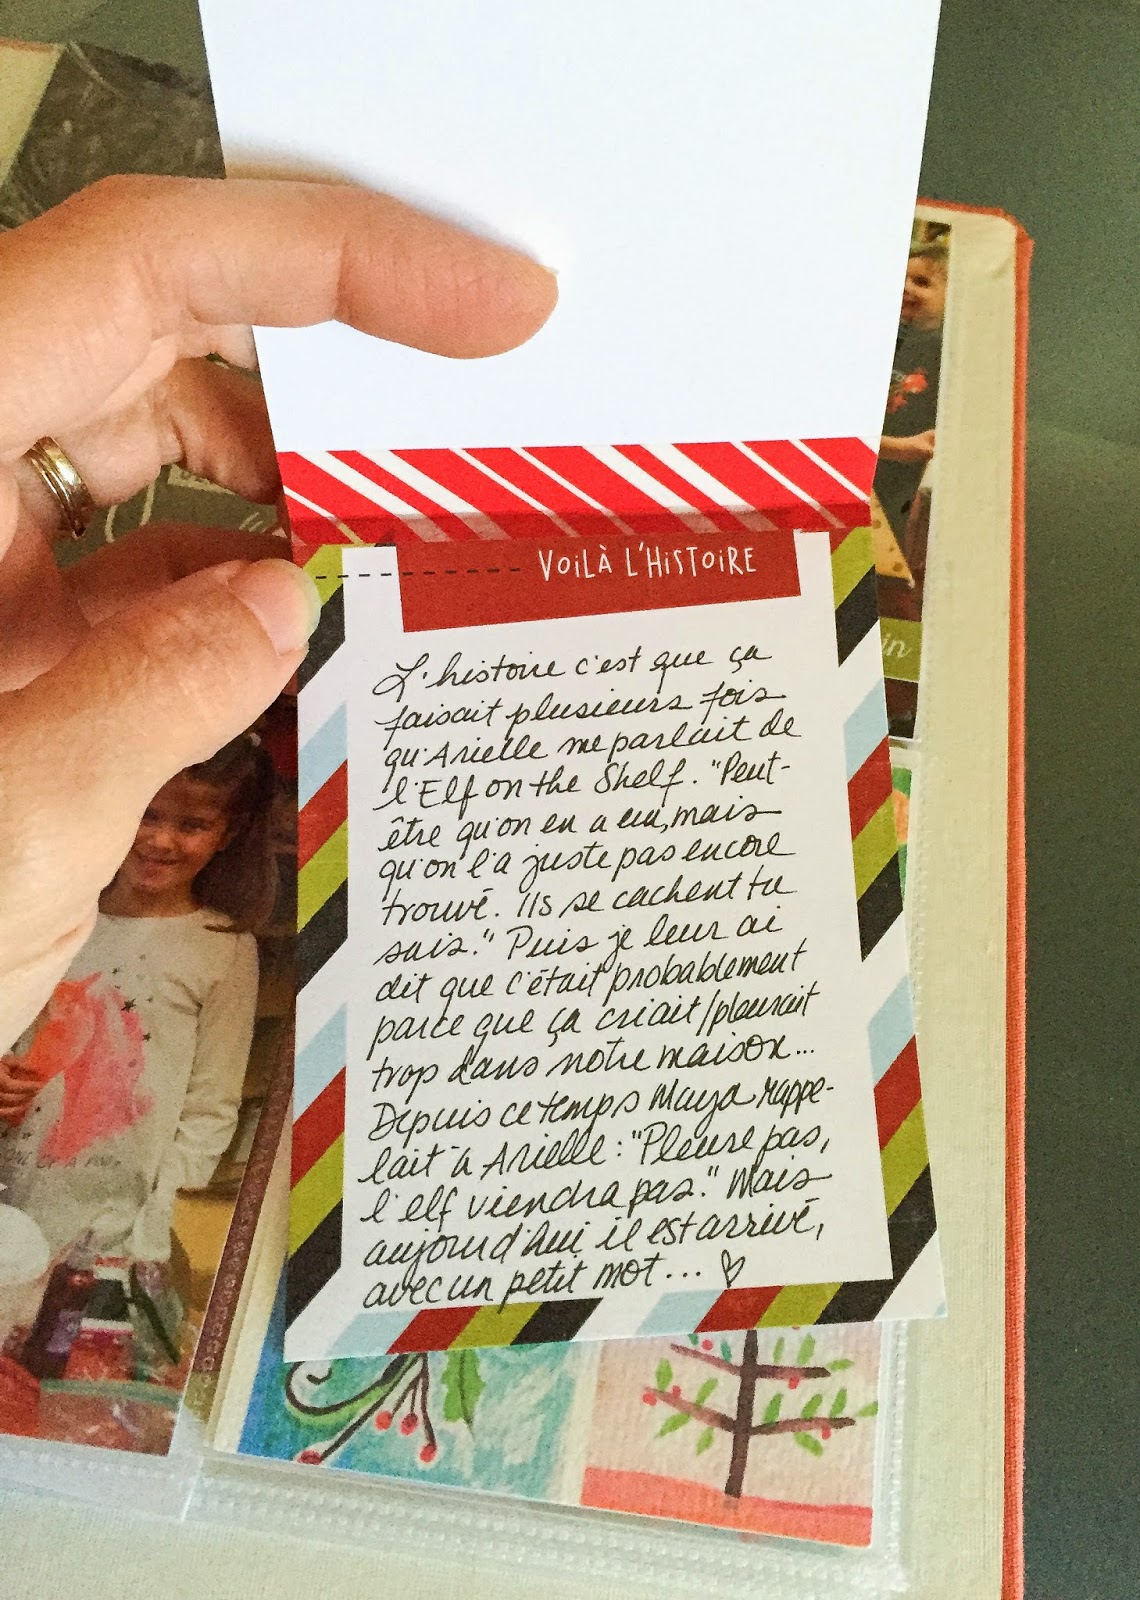 VOILÀ L'HISTOIRE
L'histoire c'est que ça
faisait plusieurs fois
qu'Arielle me parlait de
l'Elf on the Shelf. "Peut-
être qu'on en a eu, mais
qu'on l'a juste pas encore
trouvé. Ils se cachent tu
sais." Puis je leur ai
dit que c'était probablement
parce que ça criait/pleurait
trop dans notre maison...
Depuis ce temps Maya rappe-
lait à Arielle: "Pleure pas,
l'elf viendra pas." Mais
aujourd'hui il est arrivé,
avec un petit mot... ♡
in